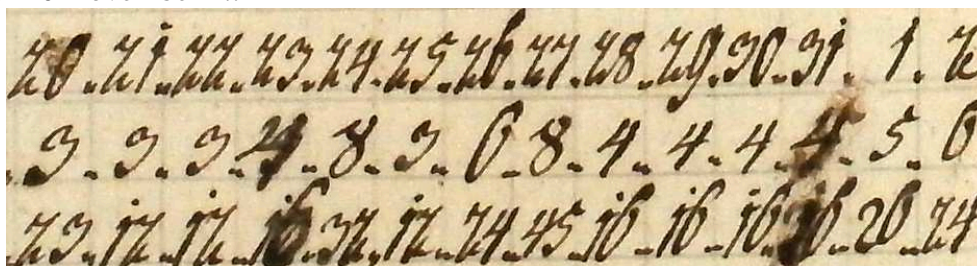 20. 21. 22. 23. 24. 25. 26. 27. 28. 29. 30. 31. 1. 2
3. 3. 3. 4. 8. 3. 6. 8. 4. 4. 4. 4. 5. 6
23. 12. 12. 16. 32. 12. 24. 45. 16. 16. 16. 16. 20. 24